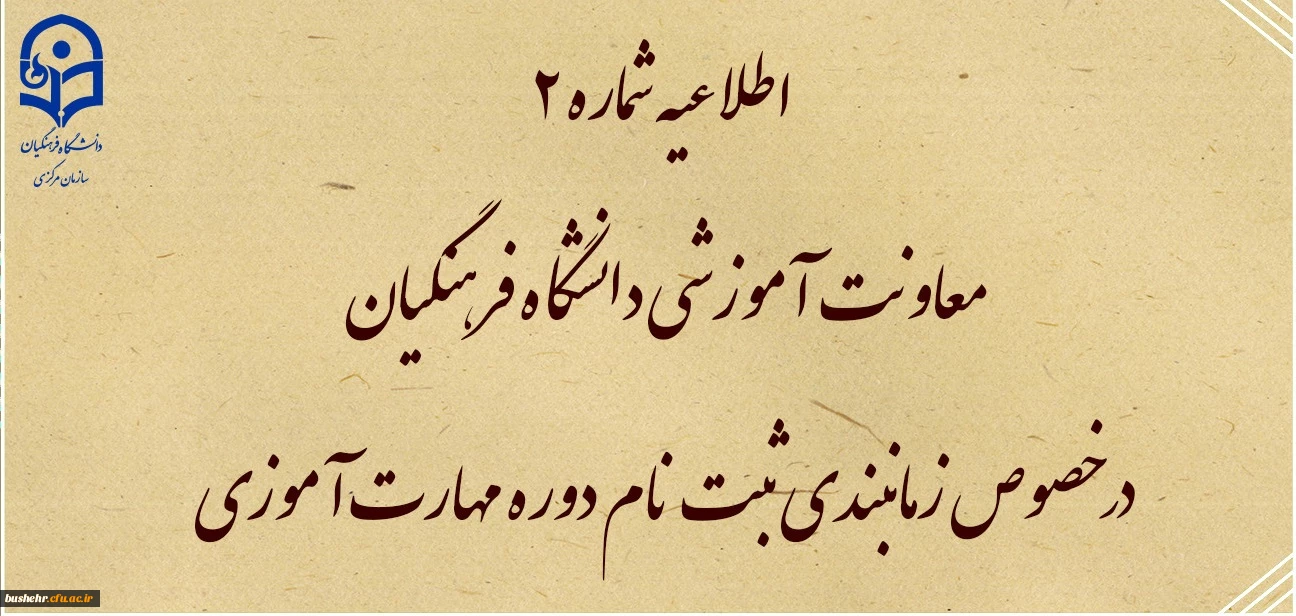 اطلاعیه شماره ۲
معاونت آموزشی دانشگاه فرهنگیان
درخصوص زمانبندی ثبت نام دوره مهارت آموزی
دانشگاه فرهنگیان
سازمان مرکزی
bushehr.cfu.ac.ir